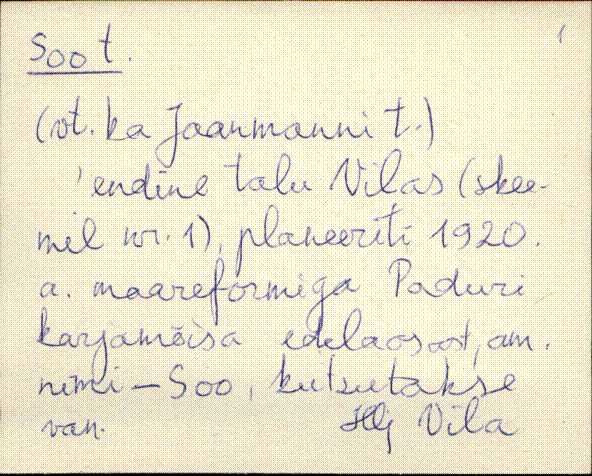 Soo t.
1
(vt. ka Jaanmanni t.)
'endine talu Vilas (skee-
mil nr. 1), planeeriti 1920.
a. maareformiga Paduri
karjamõisa edelaosast, am.
nimi - Soo, kutsutakse
van.
Vila